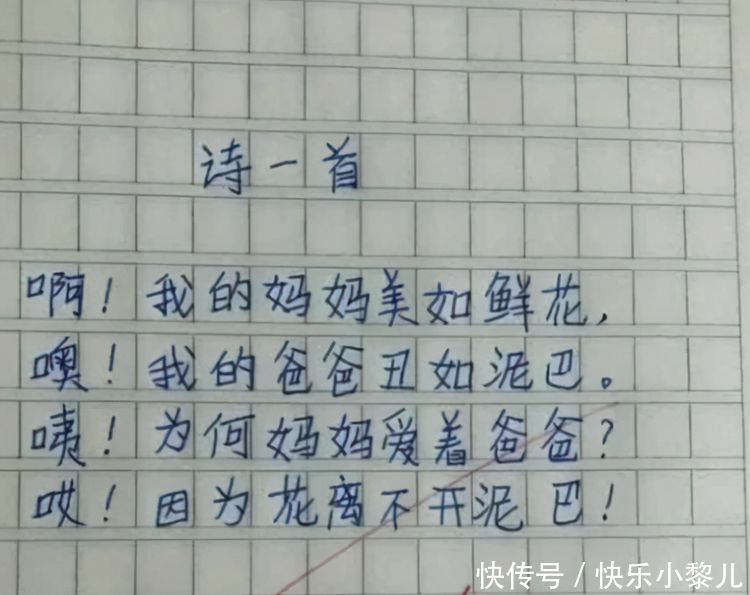 诗一首
啊！我的妈妈美如鲜花，
噢！我的爸爸丑如泥巴。
咦！为何妈妈爱着爸爸？
哎！因为花离不开泥巴！
快传号／快乐小黎儿